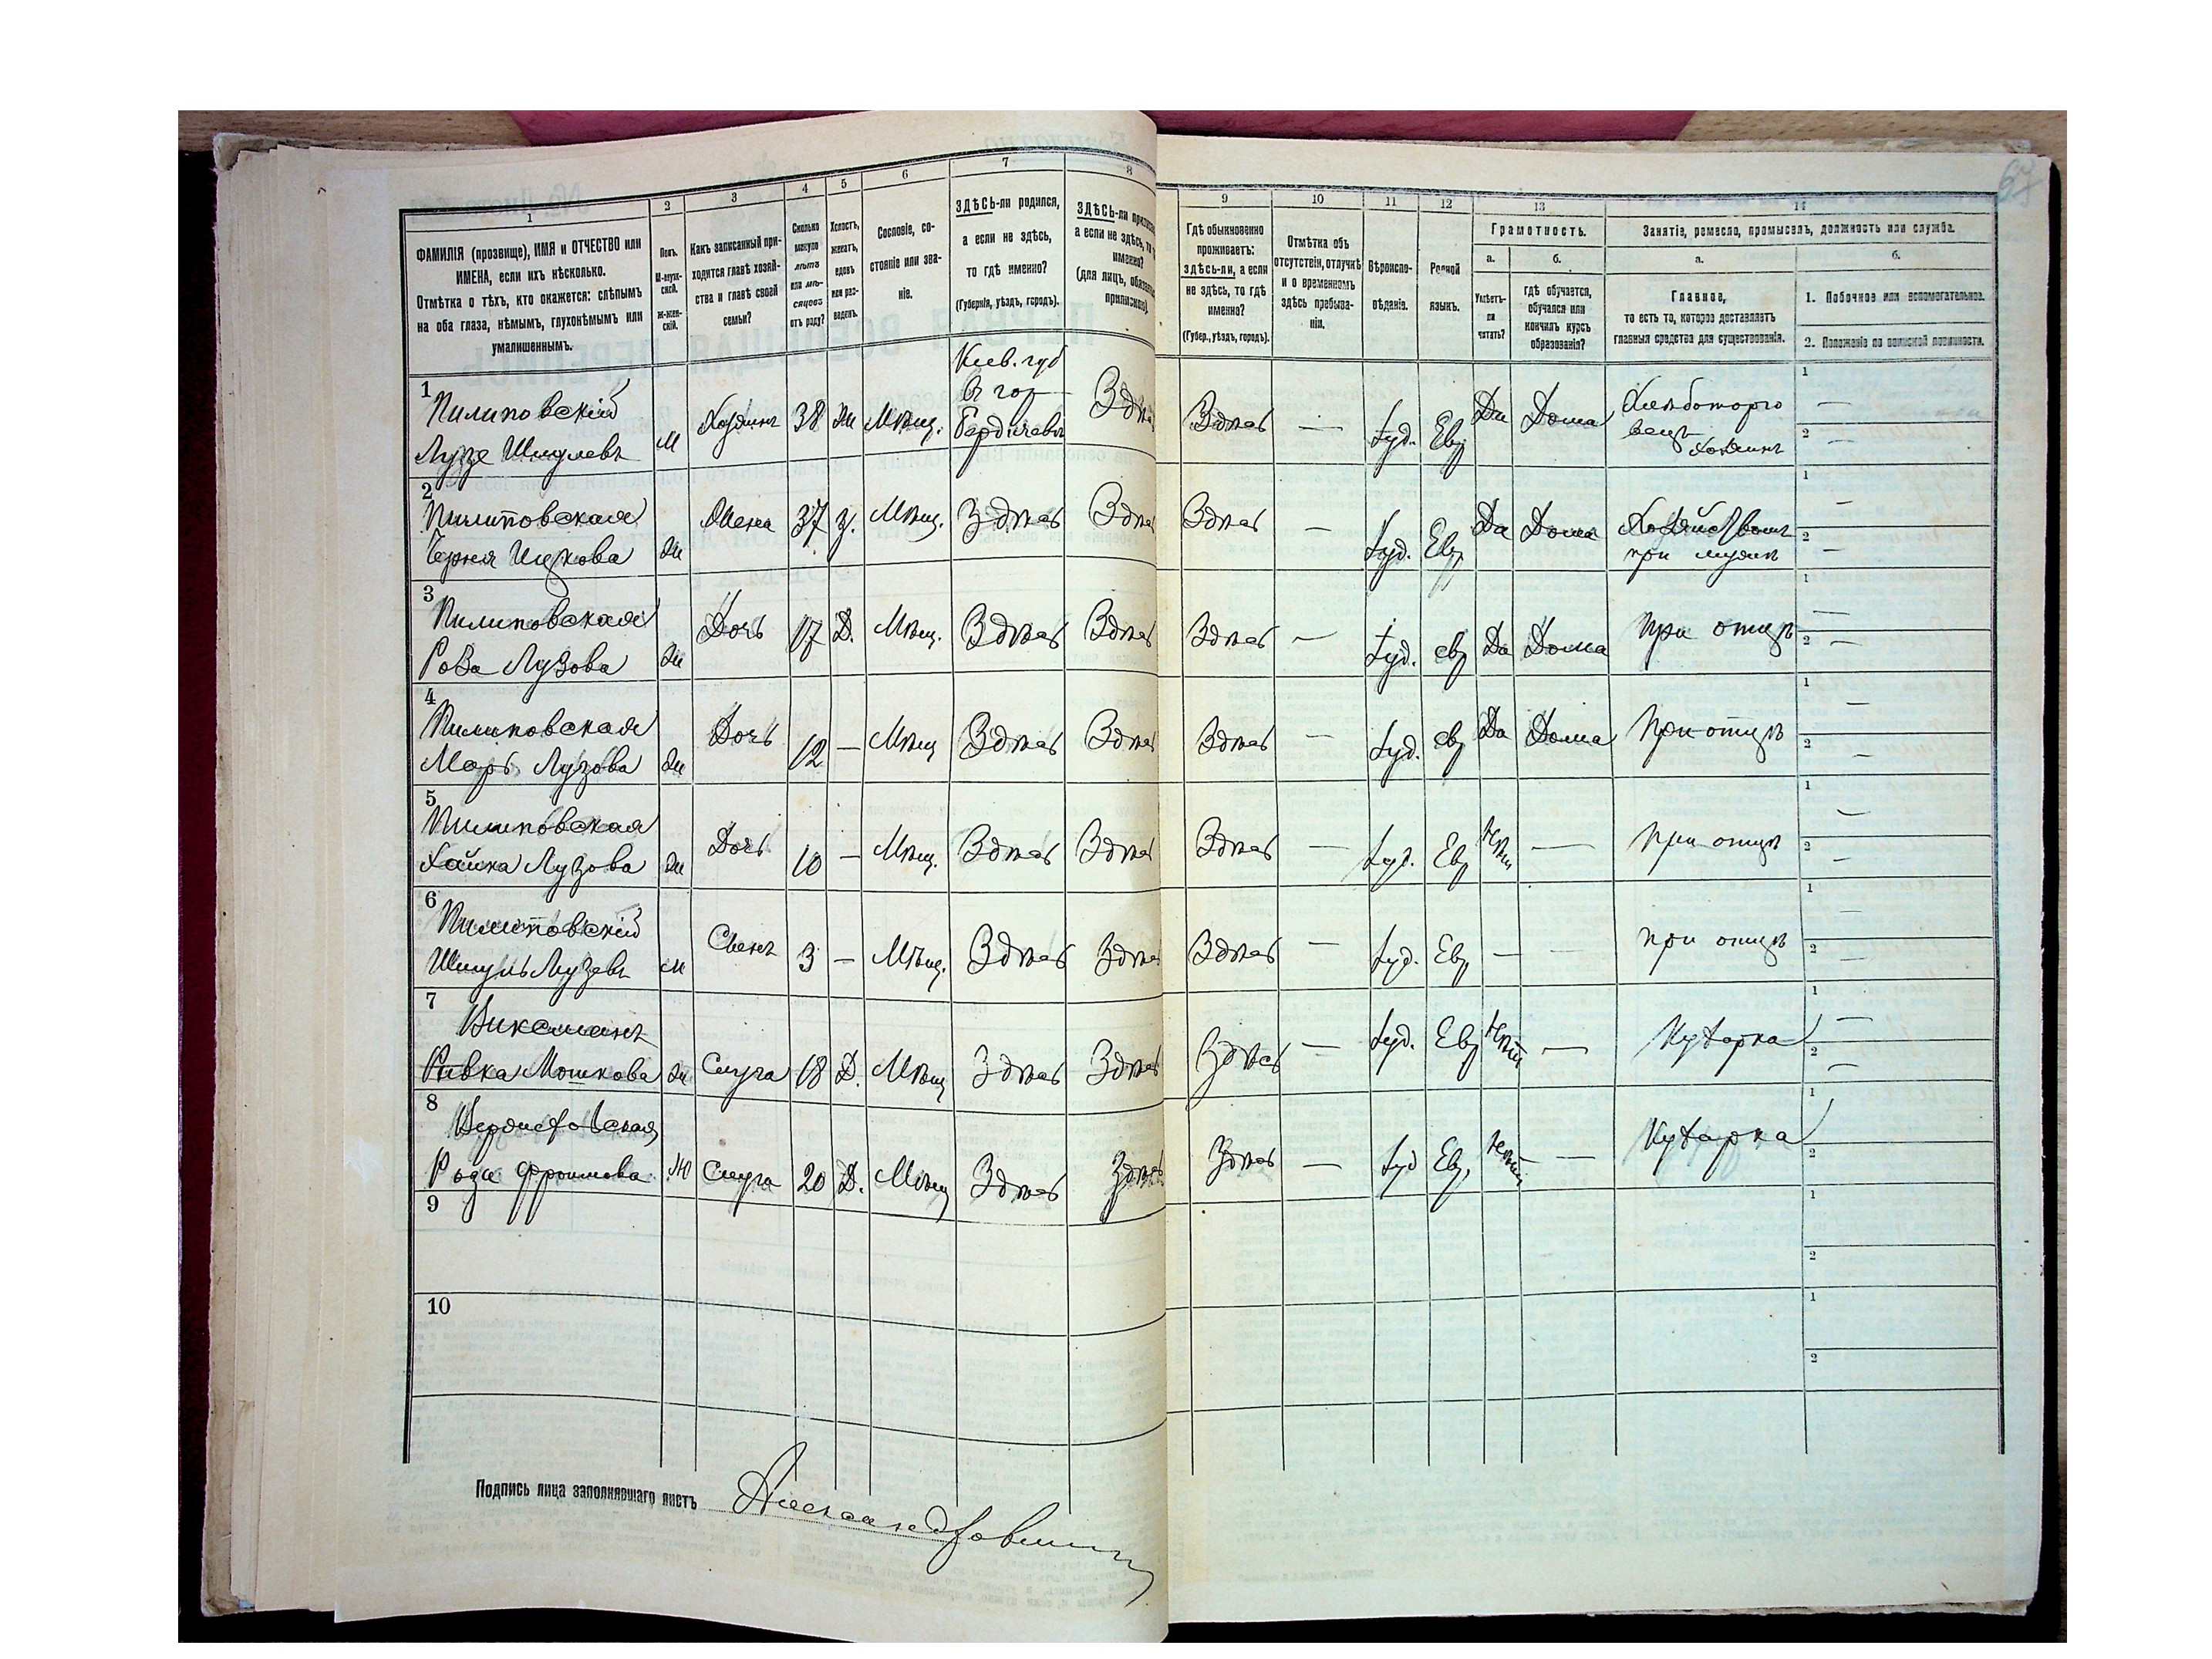 1 2 3 4 5 6 7 8
ФАМИЛІЯ (прозвище), ИМЯ и ОТЧЕСТВО или
ИМЕНА, если ихъ нѣсколько.
Отмѣтка о тѣхъ, кто окажется: слѣпымъ
на оба глаза, нѣмымъ, глухонѣмымъ или
умалишеннымъ.
Полъ.
М-мужской.
Ж-женскій.
Какъ записанный при-
ходится главѣ хозяй-
ства и главѣ своей
семьи?
Сколько
минуло
лѣтъ
или мѣ-
сяцевъ
отъ роду?
Холостъ,
женатъ,
вдовъ
или раз-
веденъ.
Сословіе, со-
стояніе или зва-
ніе.
ЗДѢСЬ-ли родился,
а если не здѣсь,
то гдѣ именно?
(Губернія, уѣздъ, городъ).
ЗДѢСЬ-ли
а если не здѣсь,
именно?
(для лицъ,
9 10 11 12 13 14
Гдѣ обыкновенно
проживаетъ:
здѣсь-ли, а если
не здѣсь, то гдѣ
именно?
(Губер., уѣздъ, городъ).
Отмѣтка объ
отсутствіи, отлучкѣ
и о временномъ
здѣсь пребыва-
ніи.
Вѣроиспо-
вѣданіе.
Родной
языкъ.
Грамотность.
а.
Умѣетъ-
ли
читать?
б.
гдѣ обучается,
обучался или
кончилъ курсъ
образованія?
Занятіе, ремесло, промыселъ, должность или служба.
а.
Главное,
то есть то, которое доставляетъ
главныя средства для существованія.
б.
1. Побочное или вспомогательное.
2. Положеніе по воинской повинности.
1 Пилиповскій
Лузе Шмулевъ М Хозяинъ 38 Ж Мѣщ. Кіев. губ
в гор
Бердичевѣ Здѣсь Здѣсь — Іуд. Евр Да Дома Хлѣботорго
вецъ
хозяинъ 1 — 2 —
2 Пилиповская
Черня Ицкова Ж Жена 37 З. Мѣщ. Здѣсь Здѣсь Здѣсь — Іуд. Евр Да Дома
при мужѣ 1 — 2 —
3 Пилиповская
Роза Лузова Ж Дочь 17 Д. Мѣщ. Здѣсь Здѣсь Здѣсь — Іуд. евр Да Дома При отцѣ 1 — 2 —
4 Пилиповская
Лузова Ж Дочь 12 — Мѣщ Здѣсь Здѣсь Здѣсь — Іуд. евр Да Дома При отцѣ 1 — 2 —
5 Пилиповская
Хайка Лузова Ж Дочь 10 — Мѣщ. Здѣсь Здѣсь Здѣсь — Іуд. Евр Нѣтъ — При отцѣ 1 — 2 —
6 Пилиповскій
Шмуль Лузевъ М Сынъ 3 — Мѣщ. Здѣсь Здѣсь Здѣсь — Іуд. Евр — — при отцѣ 1 — 2 —
7 Виксманъ
Ривка Мошкова Ж Слуга 18 Д. Мѣщ Здѣсь Здѣсь Здѣсь — Іуд. Евр Нѣтъ — Кухарка 1 — 2 —
8
Фроимова Ж Слуга 20 Д. Мѣщ Здѣсь Здѣсь Здѣсь — Іуд Евр. Нѣтъ — Кухарка 1 2
9 1 2
10 1 2
Подпись лица заполнявшаго листъ